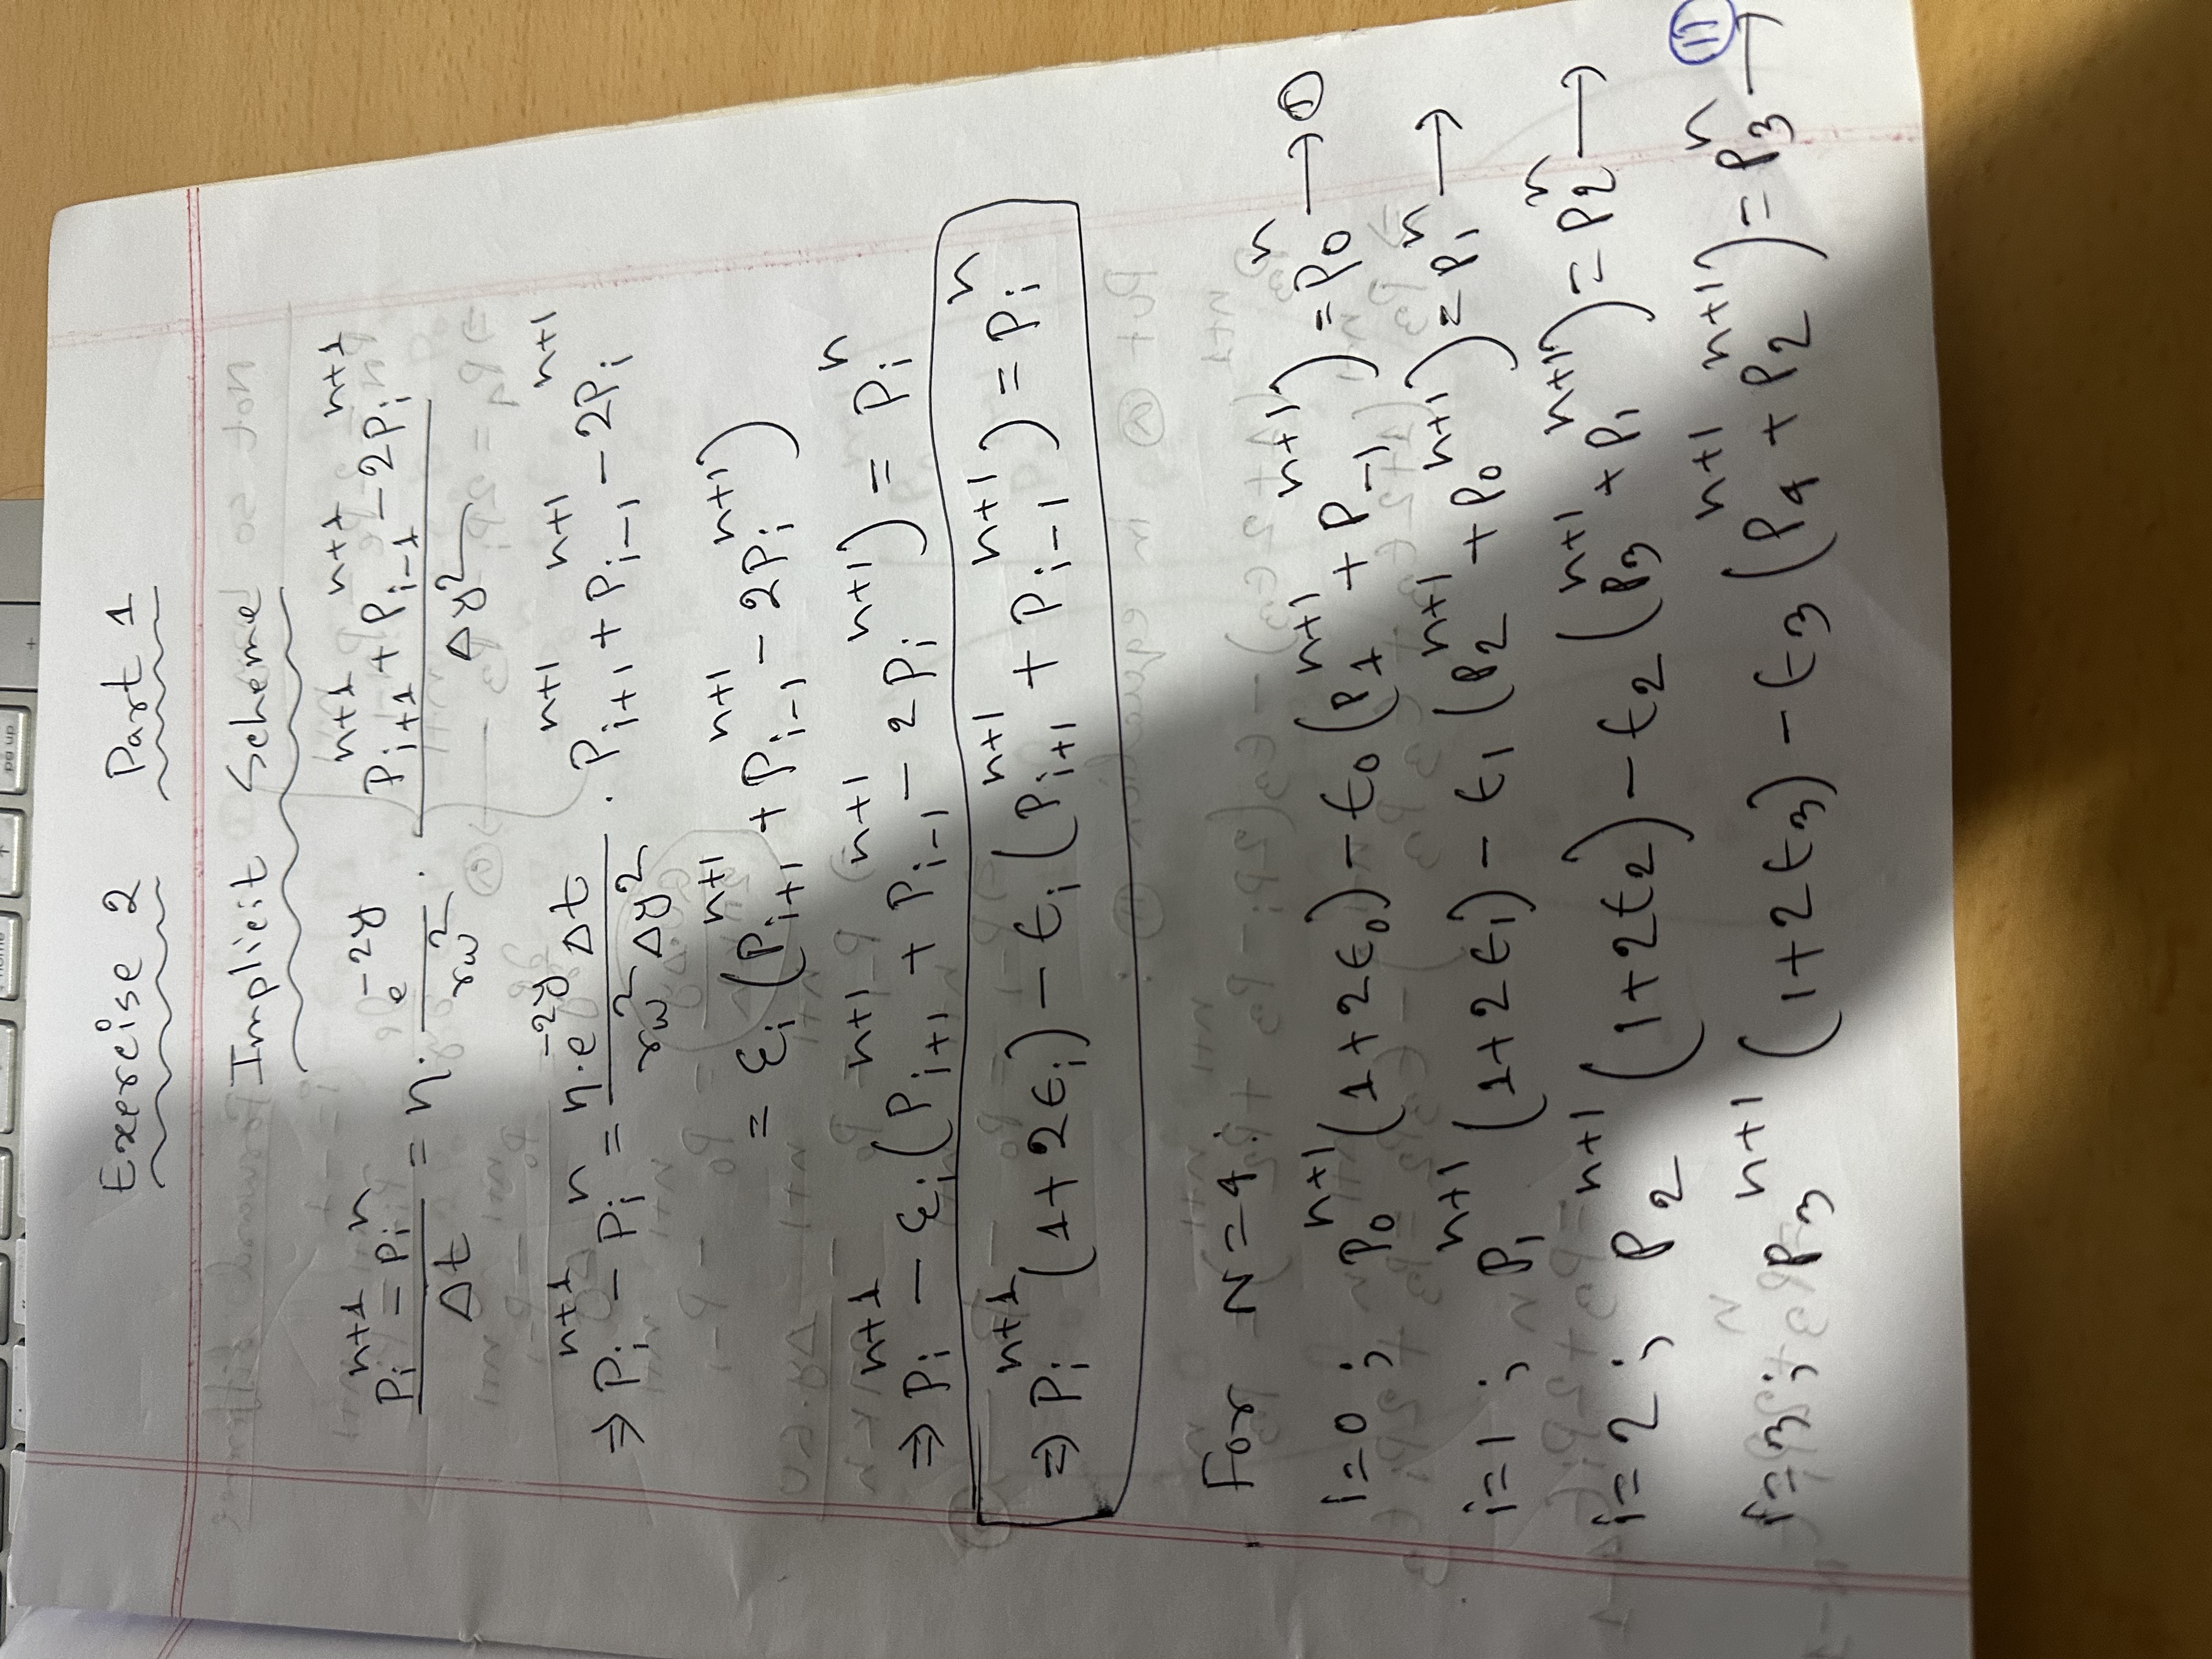 pg up
Exercise 2 Part 1
Implicit Scheme
(P_i^{n+1} - P_i^n) / Δt = η · e^{-2y} / r_w^2 · (P_{i+1}^{n+1} + P_{i-1}^{n+1} - 2P_i^{n+1}) / Δy^2
⇒ P_i^{n+1} - P_i^n = (η·e^{-2y} Δt) / (r_w^2 Δy^2) · P_{i+1}^{n+1} + P_{i-1}^{n+1} - 2P_i^{n+1}
= ε_i (P_{i+1}^{n+1} + P_{i-1}^{n+1} - 2P_i^{n+1})
⇒ P_i^{n+1} - ε_i (P_{i+1}^{n+1} + P_{i-1}^{n+1} - 2P_i^{n+1}) = P_i^n
⇒ P_i^{n+1} (1+2ϵ_i) - ϵ_i (P_{i+1}^{n+1} + P_{i-1}^{n+1}) = P_i^n
For N=4:
i=0 ; P_0^{n+1} (1+2ϵ_0) - ϵ_0 (P_1^{n+1} + P_{-1}^{n+1}) = P_0^n → Ⓘ
i=1 ; P_1^{n+1} (1+2ϵ_1) - ϵ_1 (P_2^{n+1} + P_0^{n+1}) = P_1^n →
i=2 ; P_2^{n+1} (1+2ϵ_2) - ϵ_2 (P_3^{n+1} + P_1^{n+1}) = P_2^n →
i=3 ; P_3^{n+1} (1+2ϵ_3) - ϵ_3 (P_4^{n+1} + P_2^{n+1}) = P_3^n → II